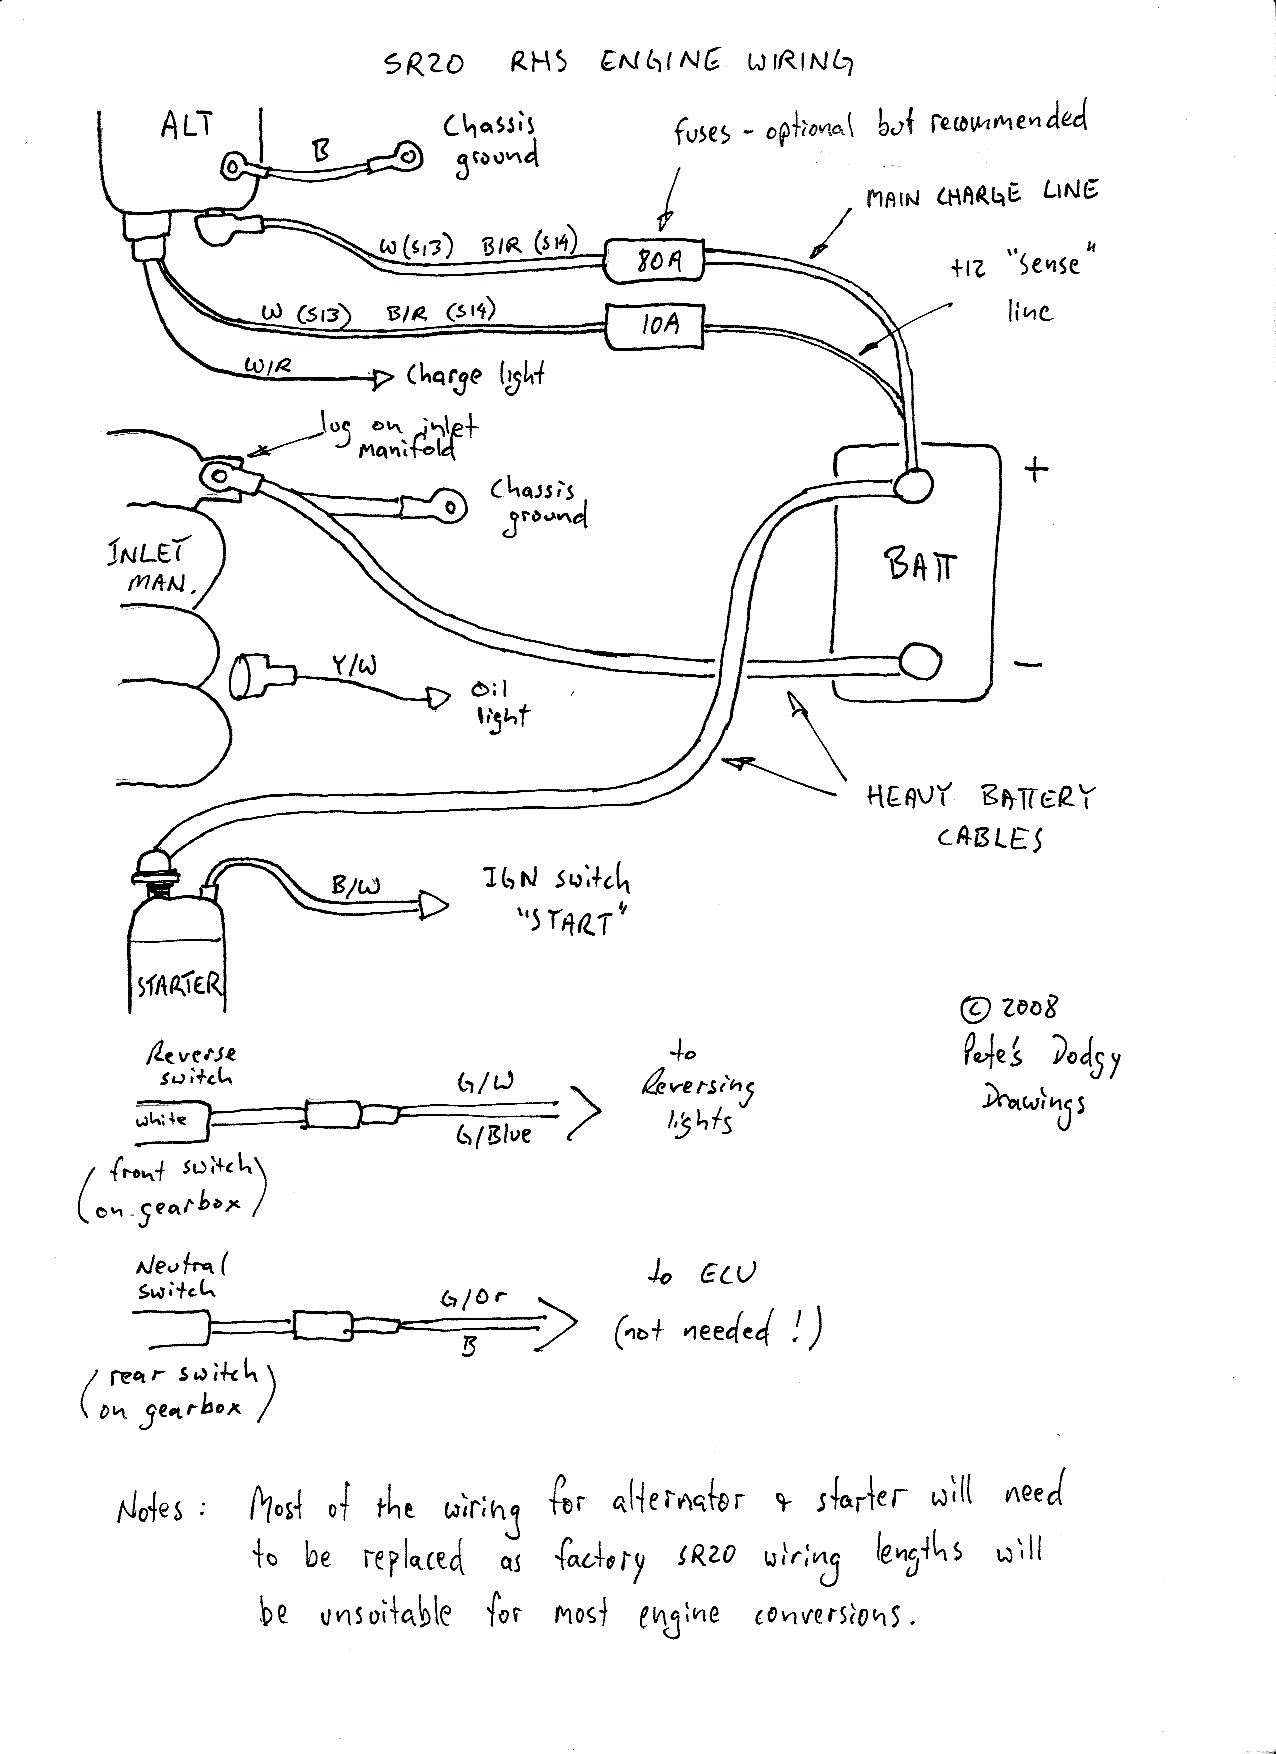 SR20 RHS ENGINE WIRING
ALT
B
Chassis
ground
fuses - optional but recommended
MAIN CHARGE LINE
W (S13) B/R (S14)
80A
+12 "sense"
line
W (S13) B/R (S14)
10A
W/R
Charge light
lug on inlet
manifold
+
Chassis
ground
INLET
MAN.
BATT
Y/W
Oil
light
−
HEAVY BATTERY
CABLES
B/W
IGN switch
"START"
STARTER
© 2008
Pete's Dodgy
Drawings
Reverse
switch
white
G/W
G/Blue
to
Reversing
lights
(front switch
on gearbox)
Neutral
switch
G/Or
B
to ECU
(not needed!)
(rear switch
on gearbox)
Notes: Most of the wiring for alternator & starter will need
to be replaced as factory SR20 wiring lengths will
be unsuitable for most engine conversions.